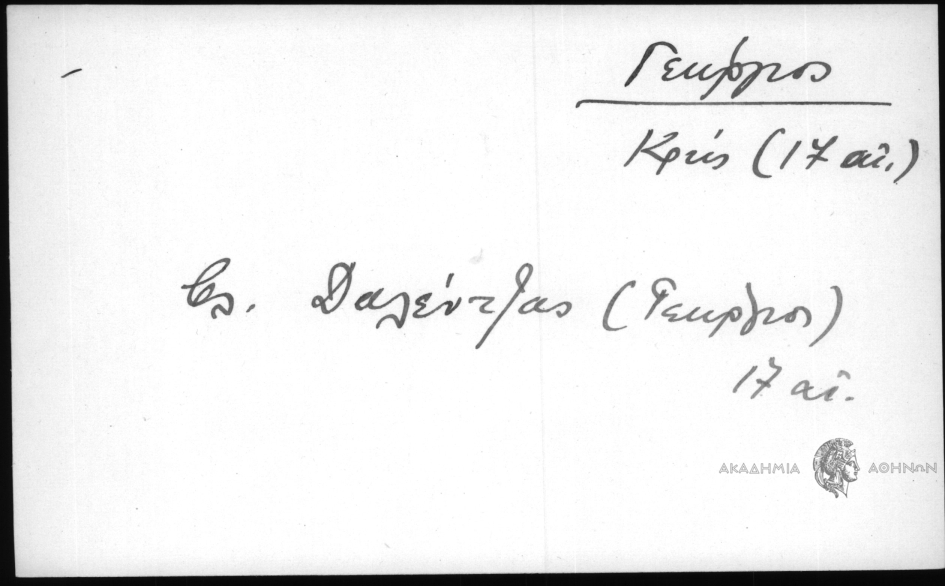 Γεώργιος
Κρής (17 αἰ.)
Βλ. Δαλέντζας (Γεώργιος)
17 αἰ.
ΑΚΑΔΗΜΙΑ ΑΘΗΝΩΝ